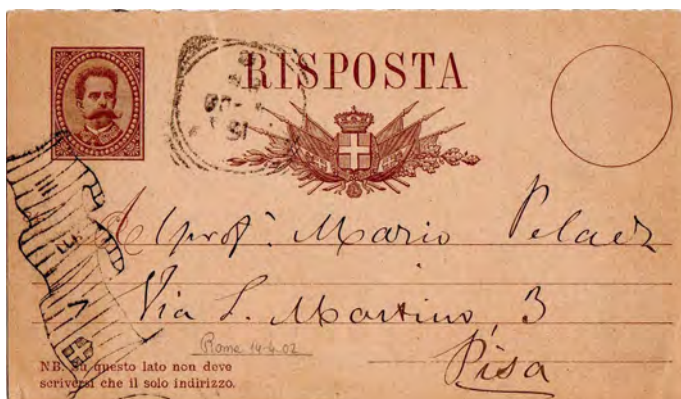 RISPOSTA
Al prof: Mario Pelaez
Via S. Martino, 3
Roma 14-4-02
Pisa
NB. Su questo lato non deve
scriversi che il solo indirizzo.